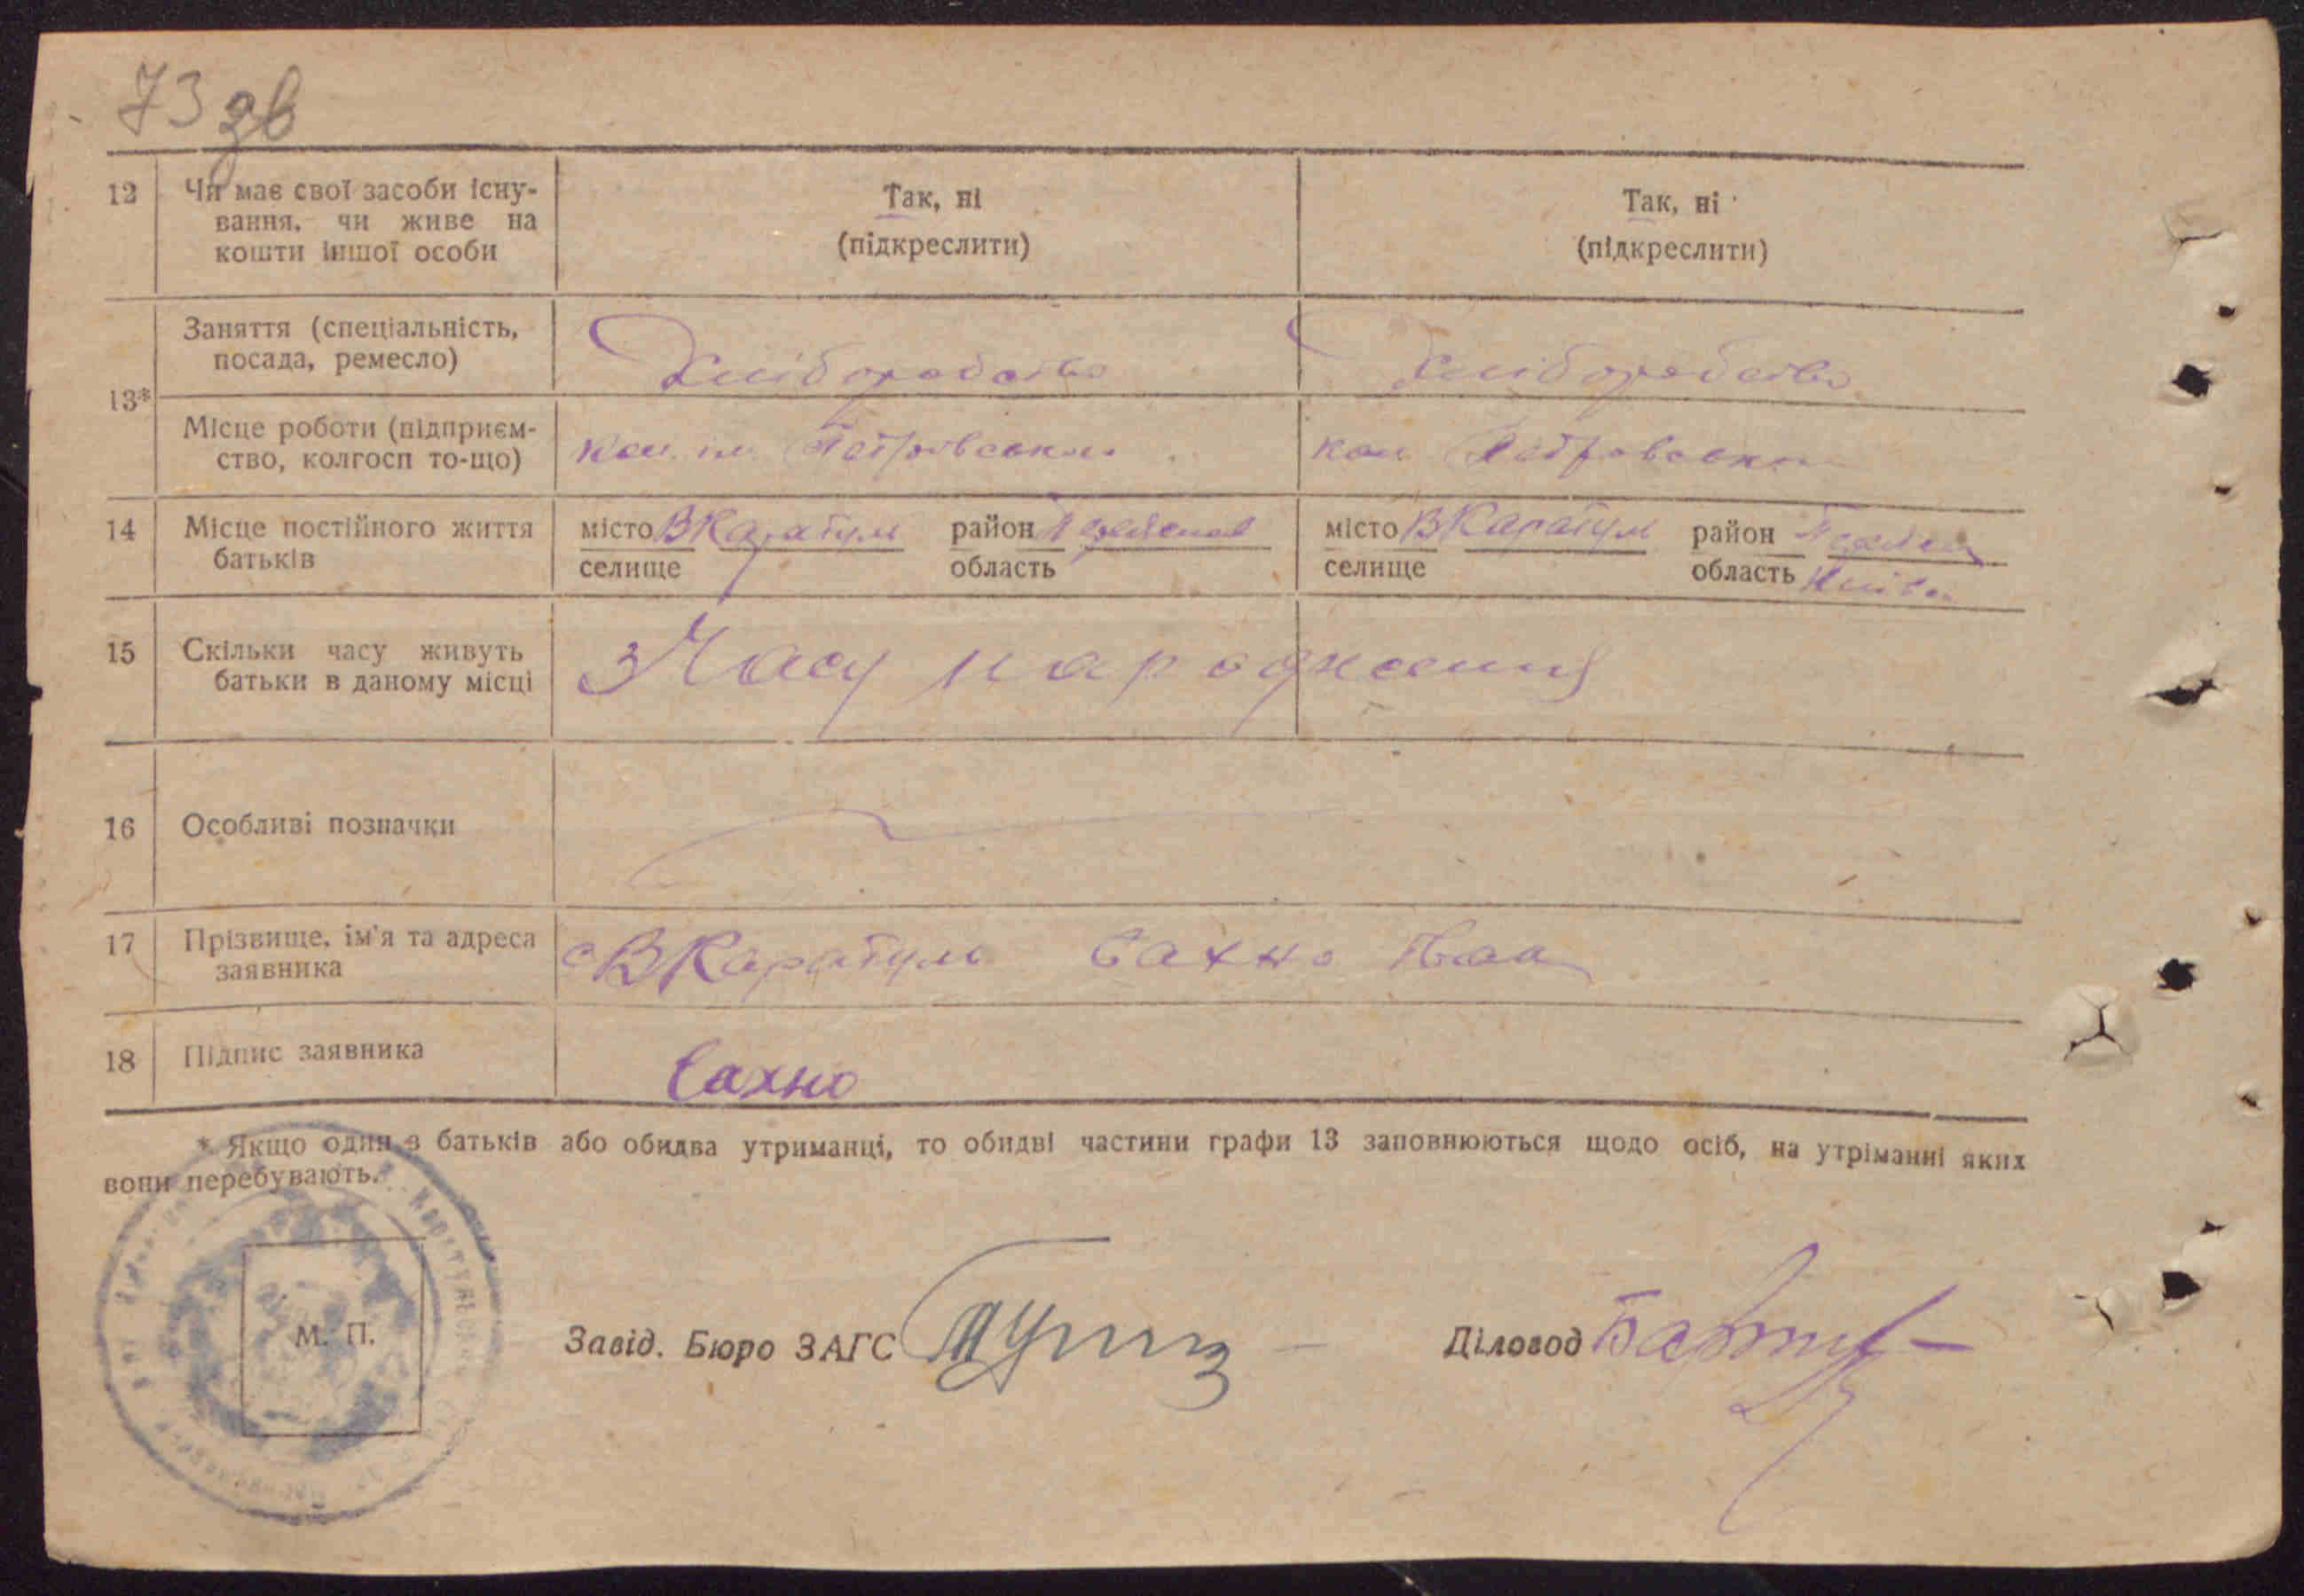 73 зв
12 Чи має свої засоби існу- Так, ні Так, ні
вання, чи живе на (підкреслити) (підкреслити)
кошти іншої особи
Заняття (спеціальність,
посада, ремесло) Хліборобство Хліборобство
13*
Місце роботи (підприєм- Кол. ім. Петровського Кол Петровського
ство, колгосп то-що)
14 Місце постійного життя місто В Каратуль район місто В Каратул район
батьків селище область селище область Київс
15 Скільки часу живуть З Часу народження
батьки в даному місці
16 Особливі позначки
17 Прізвище, ім'я та адреса с В Каратуль Сахно Іван
заявника
18 Підпис заявника Сахно
* Якщо один з батьків або обидва утриманці, то обидві частини графи 13 заповнюються щодо осіб, на утріманні яких
вони перебувають.
М. П.
Завід. Бюро ЗАГС Діловод